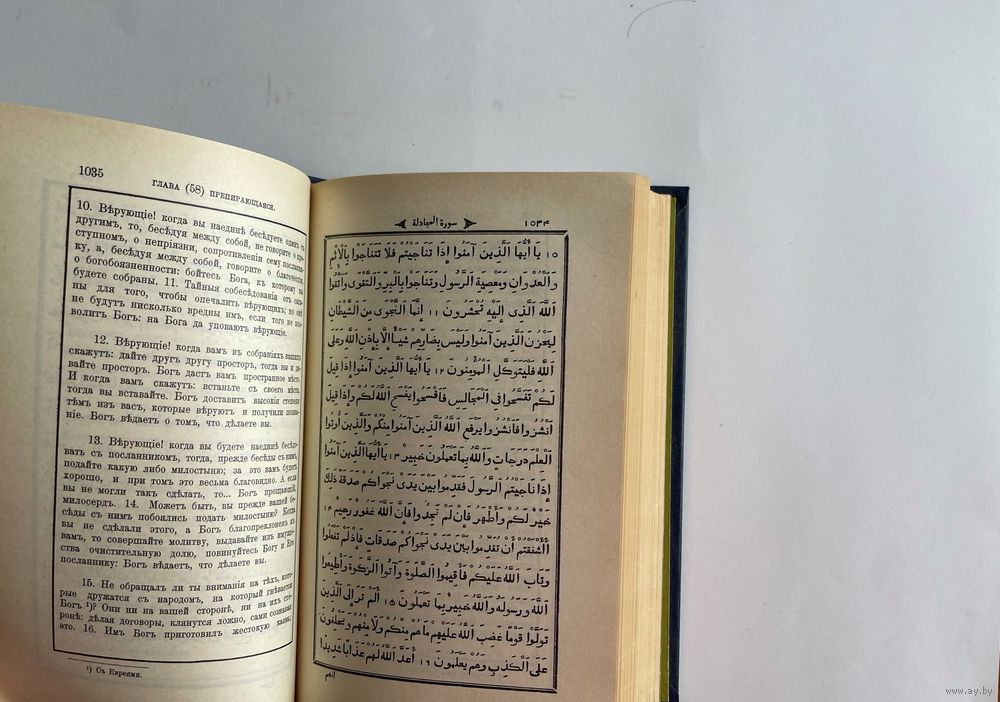 1035
ГЛАВА (58) ПРЕПИРАЮЩАЯСЯ.
10. Вѣрующіе! когда вы наединѣ бесѣдуете одинъ съ
другимъ, то, бесѣдуя между собой, не говорите о пре-
ступномъ, о непріязни, сопротивленіи сему посланни-
ку, а, бесѣдуя между собой, говорите о благочестіи,
о богобоязненности: бойтесь Бога, къ которому вы
будете собраны. 11. Тайныя собесѣдованія отъ сата-
ны для того, чтобы опечалить вѣрующихъ; но онѣ
не будутъ нисколько вредны имъ, если того не поз-
волитъ Богъ: на Бога да уповаютъ вѣрующіе.
12. Вѣрующіе! когда вамъ въ собраніяхъ вашихъ
скажутъ: дайте другъ другу просторъ, тогда вы и да-
вайте просторъ. Богъ дастъ вамъ пространное мѣсто.
И когда вамъ скажутъ: встаньте съ своего мѣста,
тогда вы вставайте. Богъ доставитъ высокія степени
тѣмъ изъ васъ, которые вѣруютъ и получили позна-
ніе. Богъ вѣдаетъ о томъ, что дѣлаете вы.
13. Вѣрующіе! когда вы будете наединѣ бесѣдо-
вать съ посланникомъ, тогда, прежде бесѣды съ нимъ,
подайте какую либо милостыню; за это вамъ будетъ
хорошо, и при томъ это весьма благовидно. А если
вы не могли такъ сдѣлать, то... Богъ прощающій,
милосердъ. 14. Можетъ быть, вы прежде вашей бе-
сѣды съ нимъ побоялись подать милостыню? Когда
вы не сдѣлали этого, а Богъ благопреклоненъ къ
вамъ, то совершайте молитву, выдавайте изъ имуще-
ства очистительную долю, повинуйтесь Богу и Его
посланнику: Богъ вѣдаетъ, что дѣлаете вы.
15. Не обращалъ ли ты вниманія на тѣхъ, кото-
рые дружатся съ народомъ, на который гнѣвается
Богъ ¹)? Они ни на вашей сторонѣ, ни на ихъ сто-
ронѣ: дѣлая договоры, клянутся ложно, сами сознавая
это. 16. Имъ Богъ приготовилъ жестокую казнь;
¹) Съ Евреями.
سورة المجادلة
١٠٣٤
١٠ يَا أَيُّهَا الَّذِينَ آمَنُوا إِذَا تَنَاجَيْتُمْ فَلَا تَتَنَاجَوْا بِالْإِثْمِ
وَالْعُدْوَانِ وَمَعْصِيَةِ الرَّسُولِ وَتَنَاجَوْا بِالْبِرِّ وَالتَّقْوَى وَاتَّقُوا
اللَّهَ الَّذِي إِلَيْهِ تُحْشَرُونَ ١١ إِنَّمَا النَّجْوَى مِنَ الشَّيْطَانِ
لِيَحْزُنَ الَّذِينَ آمَنُوا وَلَيْسَ بِضَارِّهِمْ شَيْئًا إِلَّا بِإِذْنِ اللَّهِ وَعَلَى
اللَّهِ فَلْيَتَوَكَّلِ الْمُؤْمِنُونَ ١٢ يَا أَيُّهَا الَّذِينَ آمَنُوا إِذَا قِيلَ
لَكُمْ تَفَسَّحُوا فِي الْمَجَالِسِ فَافْسَحُوا يَفْسَحِ اللَّهُ لَكُمْ وَإِذَا قِيلَ
انْشُزُوا فَانْشُزُوا يَرْفَعِ اللَّهُ الَّذِينَ آمَنُوا مِنْكُمْ وَالَّذِينَ أُوتُوا
الْعِلْمَ دَرَجَاتٍ وَاللَّهُ بِمَا تَعْمَلُونَ خَبِيرٌ ١٣ يَا أَيُّهَا الَّذِينَ آمَنُوا
إِذَا نَاجَيْتُمُ الرَّسُولَ فَقَدِّمُوا بَيْنَ يَدَيْ نَجْوَاكُمْ صَدَقَةً ذَلِكَ
خَيْرٌ لَكُمْ وَأَطْهَرُ فَإِنْ لَمْ تَجِدُوا فَإِنَّ اللَّهَ غَفُورٌ رَحِيمٌ ١٤
أَأَشْفَقْتُمْ أَنْ تُقَدِّمُوا بَيْنَ يَدَيْ نَجْوَاكُمْ صَدَقَاتٍ فَإِذْ لَمْ تَفْعَلُوا
وَتَابَ اللَّهُ عَلَيْكُمْ فَأَقِيمُوا الصَّلَوةَ وَآتُوا الزَّكَوةَ وَأَطِيعُوا
اللَّهَ وَرَسُولَهُ وَاللَّهُ خَبِيرٌ بِمَا تَعْمَلُونَ ١٥ أَلَمْ تَرَ إِلَى الَّذِينَ
تَوَلَّوْا قَوْمًا غَضِبَ اللَّهُ عَلَيْهِمْ مَا هُمْ مِنْكُمْ وَلَا مِنْهُمْ وَيَحْلِفُونَ
عَلَى الْكَذِبِ وَهُمْ يَعْلَمُونَ ١٦ أَعَدَّ اللَّهُ لَهُمْ عَذَابًا شَدِيدًا
إنهم
www.ay.by